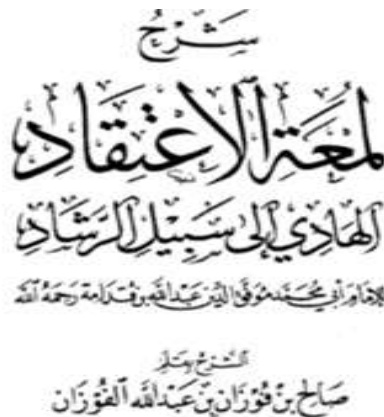 شرح
لمعة الاعتقاد
الهادي إلى سبيل الرشاد
للإمام أبي محمد موفق الدين عبد الله بن قدامة رحمه الله
الشرح بقلم
صالح بن فوزان بن عبد الله الفوزان